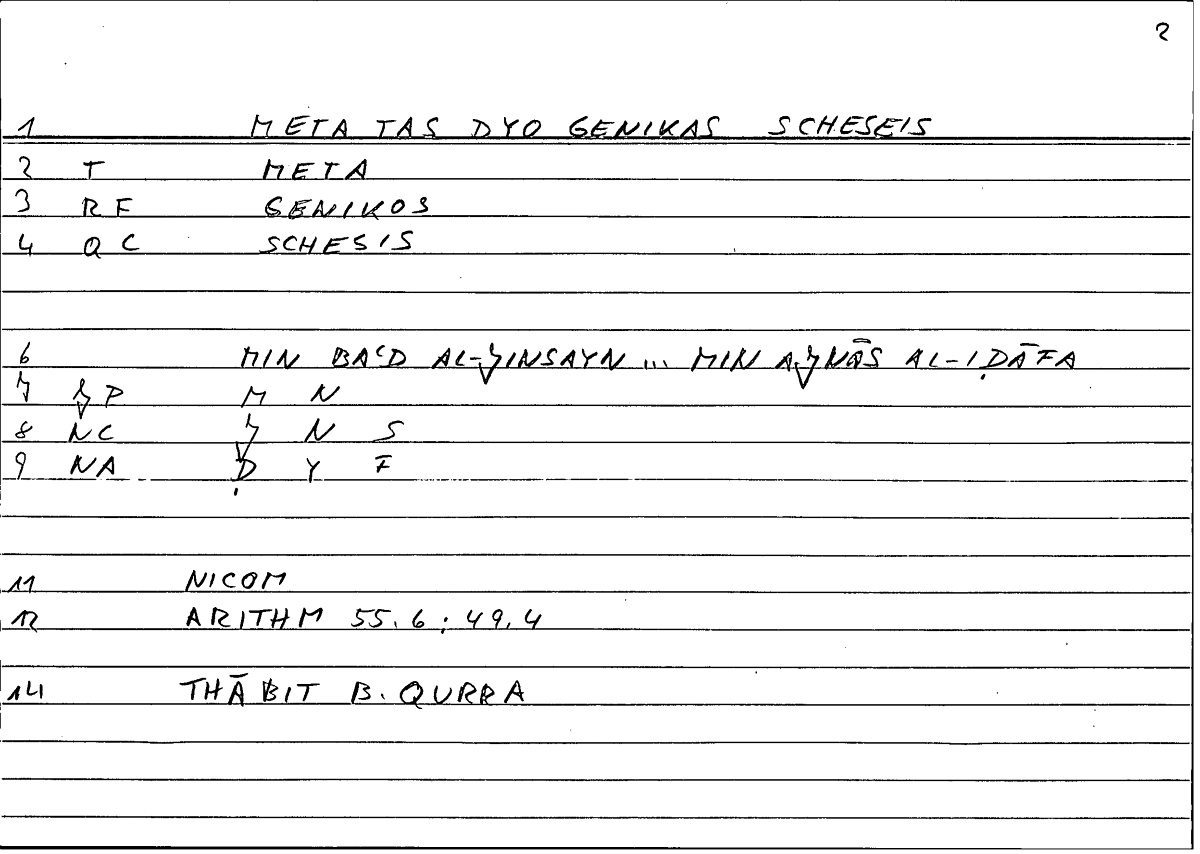 2
1 META TAS DYO GENIKAS SCHESEIS
2 T META
3 RF GENIKOS
4 QC SCHESIS
6 MIN BAʿD AL-ǦINSAYN ... MIN AǦNĀS AL-IḌĀFA
7 ǦP M N
8 NC Ǧ N S
9 NA Ḍ Y F
11 NICOM
12 ARITHM 55.6 ; 49.4
14 THĀBIT B. QURRA